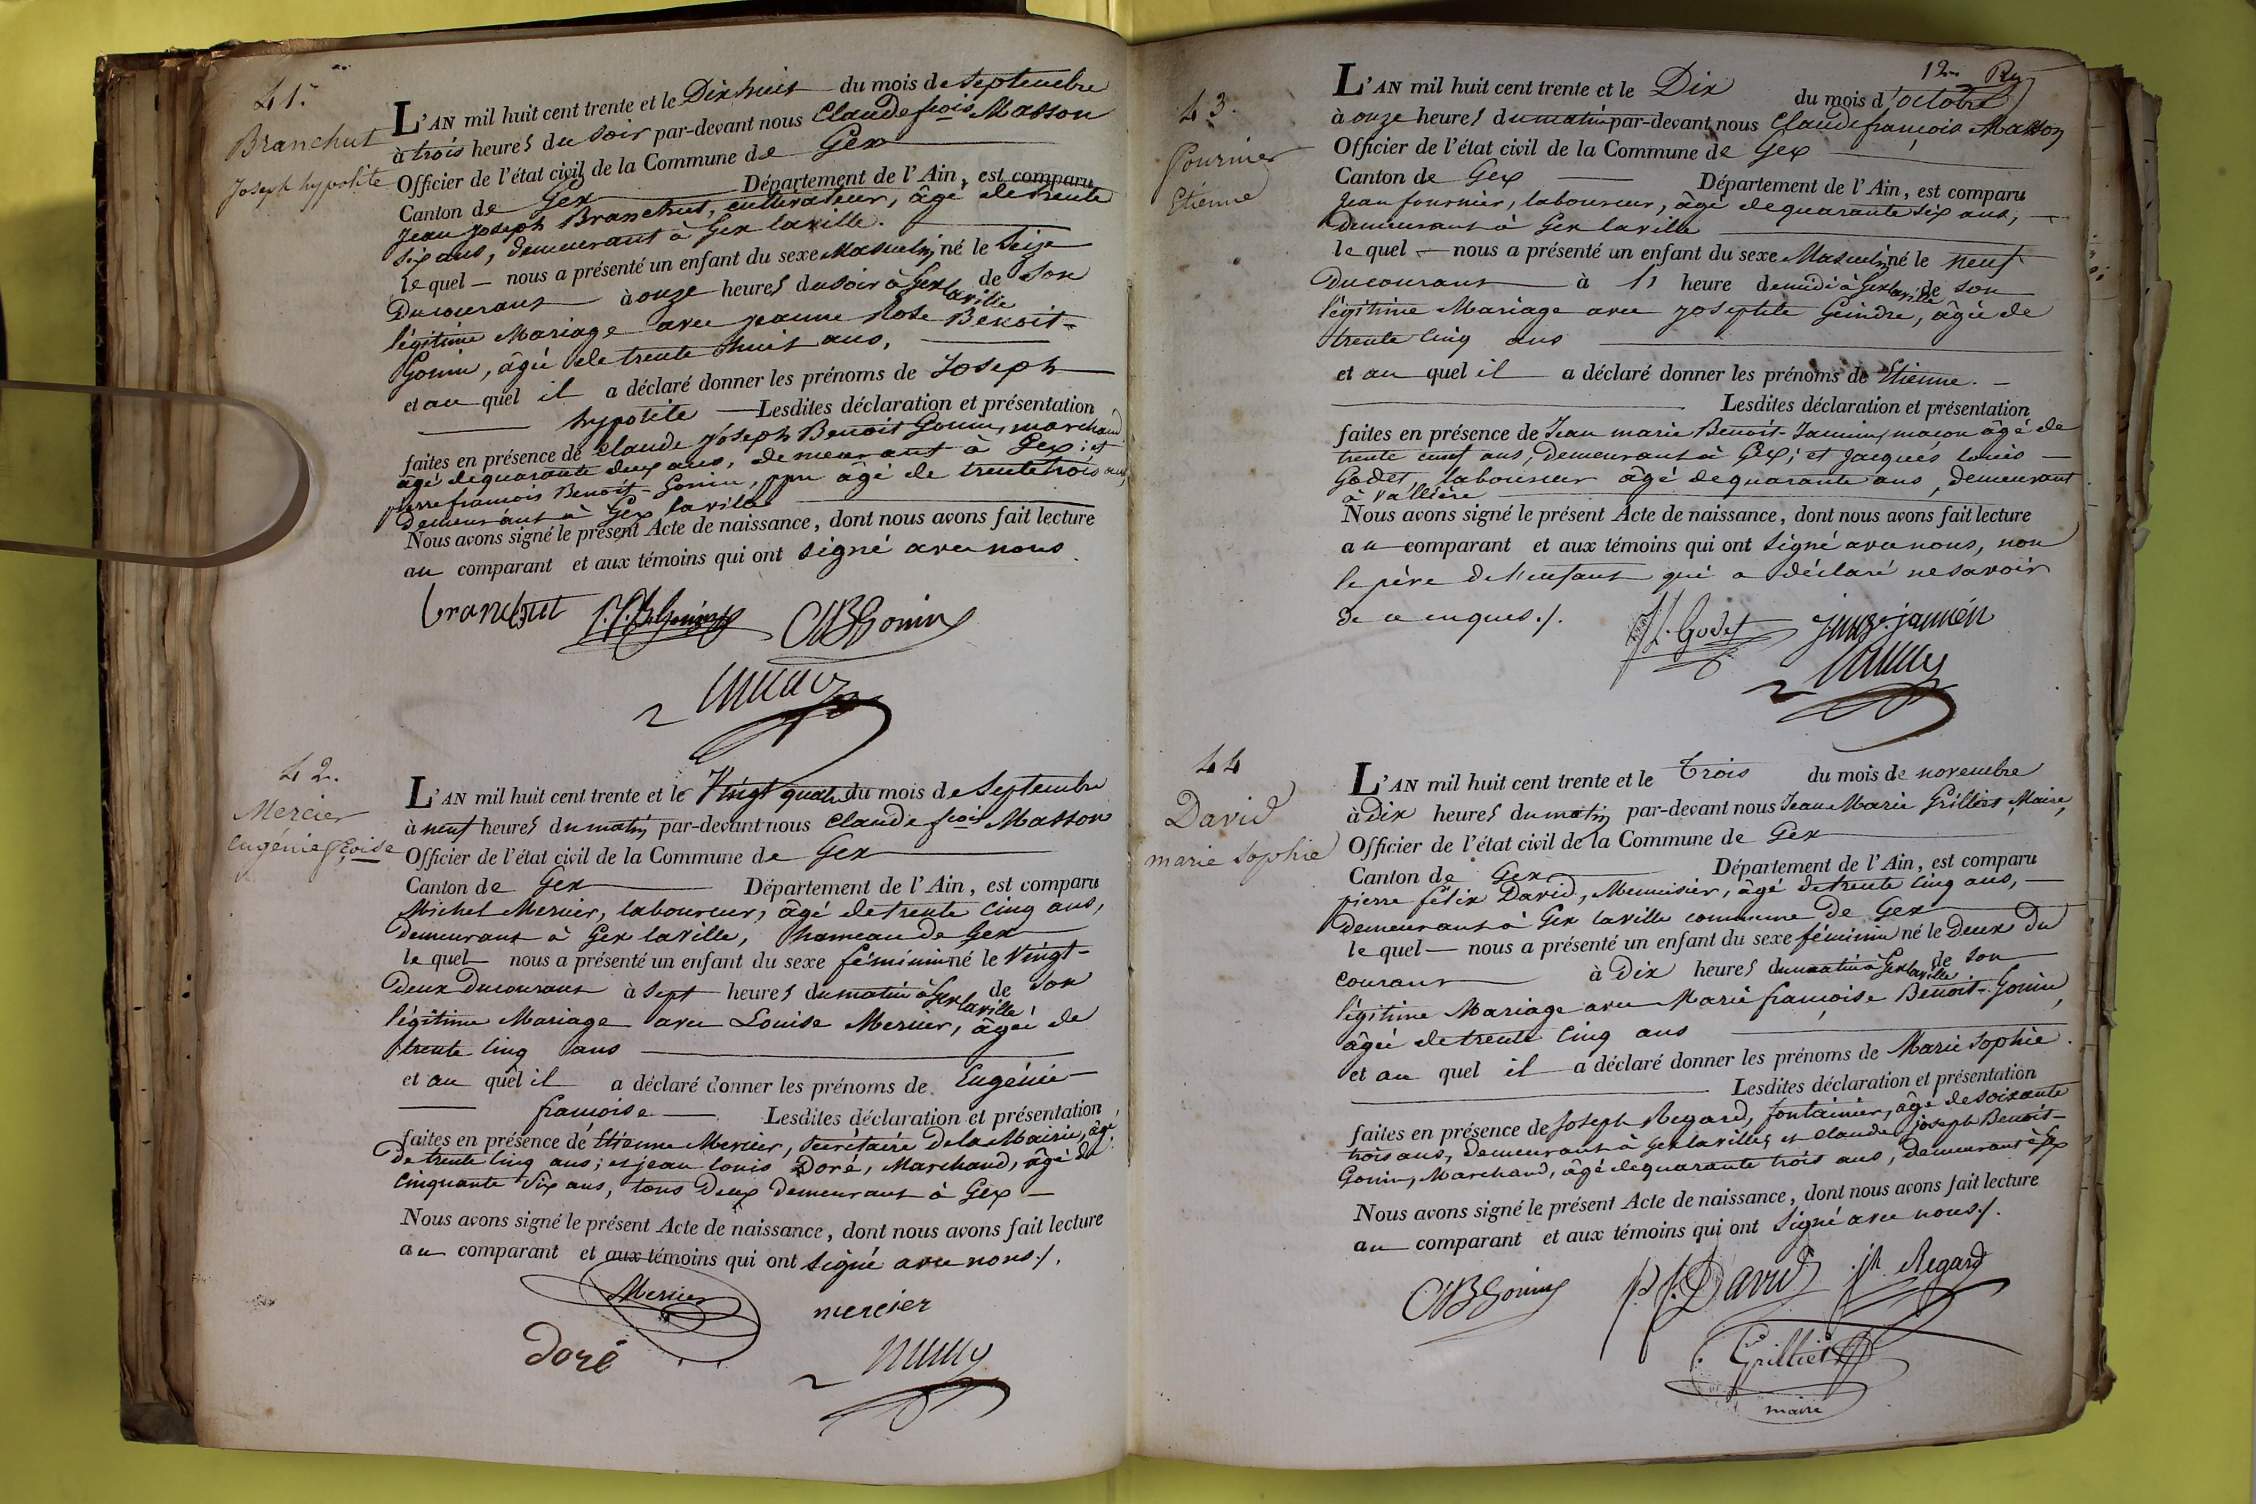 41.
Branchut
Joseph hypolite
L'AN mil huit cent trente et le Dix huit du mois de Septembre
à trois heures du soir par-devant nous Claude fçois Masson
Officier de l'état civil de la Commune de Gex
Canton de Gex Département de l'Ain, est comparu
Jean Joseph Branchut, cultivateur, âgé de trente
six ans, demeurant à Gex la ville.
le quel nous a présenté un enfant du sexe Masculin né le Seize
Du courant à onze heures du soir à Gex la ville de son
légitime Mariage avec jeanne Rose Benoit-
Gonin, âgée de trente huit ans,
et au quel il a déclaré donner les prénoms de Joseph
hypolite Lesdites déclaration et présentation
faites en présence de Claude Joseph Benoit Gonin, marchand
âgé de quarante deux ans, demeurant à Gex; et
pierre françois Benoit Gonin, ppre âgé de trente trois ans,
demeurant à Gex la ville
Nous avons signé le présent Acte de naissance, dont nous avons fait lecture
au comparant et aux témoins qui ont signé avec nous.
branchut CJBGonin
42.
Mercier
Eugénie fçoise
L'AN mil huit cent trente et le Vingt quatre du mois de Septembre
à neuf heures du matin par-devant nous Claude fçois Masson
Officier de l'état civil de la Commune de Gex
Canton de Gex Département de l'Ain, est comparu
Michel Mercier, laboureur, âgé de trente cinq ans,
demeurant à Gex la Ville, hameau de Gex
le quel nous a présenté un enfant du sexe féminin né le Vingt-
Deux Du courant à Sept heures du matin à Gex la ville de son
légitime Mariage avec Louise Mercier, âgée de
trente cinq ans
et au quel il a déclaré donner les prénoms de Eugénie
françoise Lesdites déclaration et présentation
faites en présence de Etienne Mercier, Secrétaire De la Mairie, âgé
De trente cinq ans; et jean louis Doré, Marchand, âgé de
Cinquante Six ans, tous Deux Demeurant à Gex
Nous avons signé le présent Acte de naissance, dont nous avons fait lecture
au comparant et aux témoins qui ont signé avec nous /.
Mercier mercier
Doré
12me
43.
Fournier
Etienne
L'AN mil huit cent trente et le Dix du mois d'octobre
à onze heures du matin par-devant nous Claude françois Masson
Officier de l'état civil de la Commune de Gex
Canton de Gex Département de l'Ain, est comparu
Jean fournier, laboureur, âgé de quarante six ans,
Demeurant à Gex la ville
le quel nous a présenté un enfant du sexe Masculin né le neuf
Du courant à 11 heure de midi à Gex la ville de son
légitime Mariage avec josephte Geindre, âgée de
trente cinq ans
et au quel il a déclaré donner les prénoms de Etienne.
Lesdites déclaration et présentation
faites en présence de Jean marie Benoit-Jannin, maçon âgé de
trente neuf ans, Demeurant à Gex; et Jacques louis
Godet, laboureur âgé de quarante ans, demeurant
à Vallière
Nous avons signé le présent Acte de naissance, dont nous avons fait lecture
au comparant et aux témoins qui ont signé avec nous, non
le père de l'enfant qui a déclaré ne savoir
de ce enquis /.
J. L. Godet
44
David
marie Sophie
L'AN mil huit cent trente et le Trois du mois de novembre
à Dix heures du matin par-devant nous Jean Marie Grilliet, Maire,
Officier de l'état civil de la Commune de Gex
Canton de Gex Département de l'Ain, est comparu
pierre félix David, Menuisier, âgé de trente cinq ans,
Demeurant à Gex la ville commune de Gex
le quel nous a présenté un enfant du sexe féminin né le Deux du
courant à Dix heures du matin à Gex la ville de son
légitime Mariage avec Marie françoise Benoit-Gonin,
âgée de trente cinq ans
et au quel il a déclaré donner les prénoms de Marie Sophie.
Lesdites déclaration et présentation
faites en présence de Joseph Regard, fontainier, âgé de soixante
trois ans, demeurant à Gex la ville; et Claude Joseph Benoit-
Gonin, Marchand, âgé de quarante trois ans, demeurant à Gex
Nous avons signé le présent Acte de naissance, dont nous avons fait lecture
au comparant et aux témoins qui ont signé avec nous /.
CJBGonin p. f. David jh. Regard
Grilliet
maire